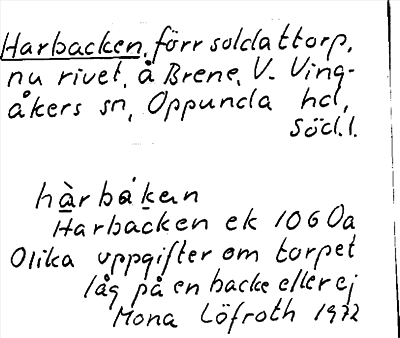 Harbacken, förr soldattorp,
nu rivet, å Brene, V. Ving-
åkers sn, Oppunda hd,
Södl.
hàrbákən
Harbacken ek 1060a
Olika uppgifter om torpet
låg på en backe eller ej
Mona Löfroth 1972